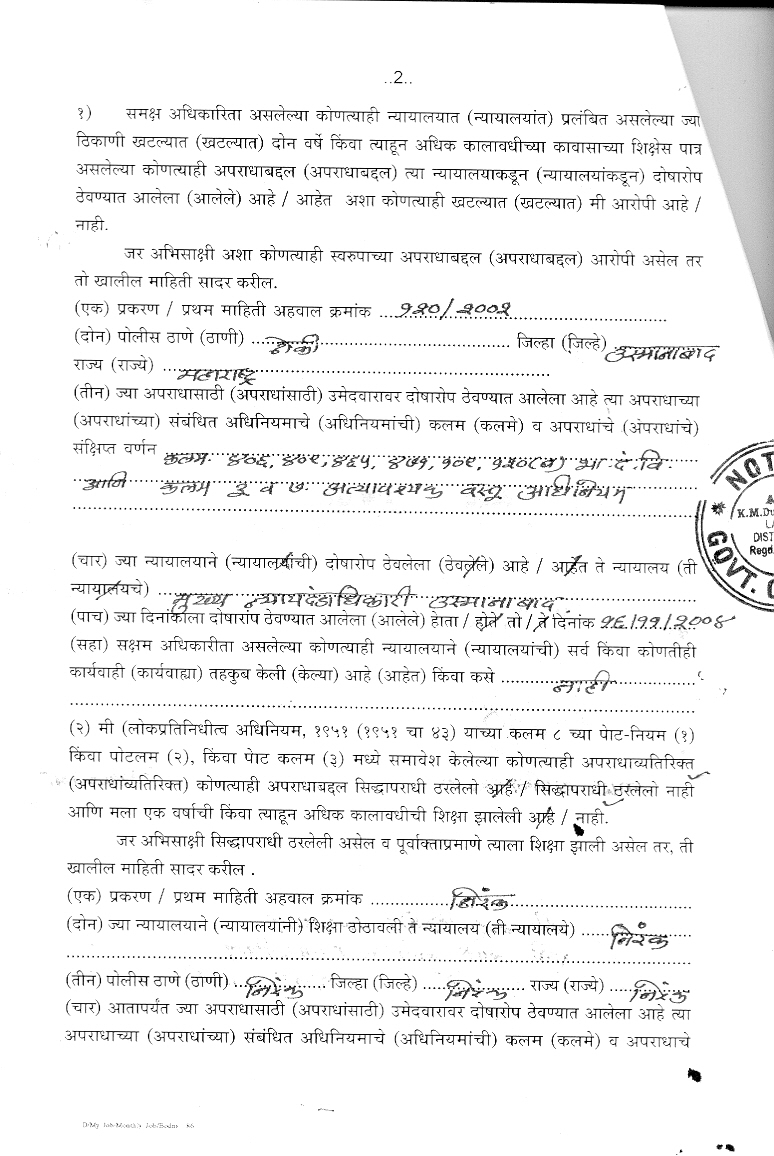 ..2..
१) समक्ष अधिकारिता असलेल्या कोणत्याही न्यायालयात (न्यायालयांत) प्रलंबित असलेल्या ज्या
ठिकाणी खटल्यात (खटल्यात) दोन वर्षे किंवा त्याहून अधिक कालावधीच्या कावासाच्या शिक्षेस पात्र
असलेल्या कोणत्याही अपराधाबद्दल (अपराधाबद्दल) त्या न्यायालयाकडून (न्यायालयांकडून) दोषारोप
ठेवण्यात आलेला (आलेले) आहे / आहेत अशा कोणत्याही खटल्यात (खटल्यात) मी आरोपी आहे /
नाही.
जर अभिसाक्षी अशा कोणत्याही स्वरुपाच्या अपराधाबद्दल (अपराधाबद्दल) आरोपी असेल तर
तो खालील माहिती सादर करील.
(एक) प्रकरण / प्रथम माहिती अहवाल क्रमांक ...१२०/२००२
(दोन) पोलीस ठाणे (ठाणी) ...ढोकी... जिल्हा (जिल्हे) उस्मानाबाद
राज्य (राज्ये) ...महाराष्ट्र...
(तीन) ज्या अपराधासाठी (अपराधांसाठी) उमेदवारावर दोषारोप ठेवण्यात आलेला आहे त्या अपराधाच्या
(अपराधांच्या) संबंधित अधिनियमाचे (अधिनियमांची) कलम (कलमे) व अपराधांचे (अंपराधांचे)
संक्षिप्त वर्णन कलम ४०६, ४०९, ४६५, ४७१, १०९, १२०(ब) भा.दं.वि.
आणि कलम ३ व ७ अत्यावश्यक वस्तू अधिनियम
(चार) ज्या न्यायालयाने (न्यायालयांची) दोषारोप ठेवलेला (ठेवलेले) आहे / आहेत ते न्यायालय (ती
न्यायालयचे) ...मुख्य न्यायदंडाधिकारी उस्मानाबाद
(पाच) ज्या दिनांकाला दोषारोप ठेवण्यात आलेला (आलेले) होता / होते तो / ते दिनांक १६/११/२००४
(सहा) सक्षम अधिकारीता असलेल्या कोणत्याही न्यायालयाने (न्यायालयांची) सर्व किंवा कोणतीही
कार्यवाही (कार्यवाह्या) तहकुब केली (केल्या) आहे (आहेत) किंवा कसे ...नाही
(२) मी (लोकप्रतिनिधीत्व अधिनियम, १९५१ (१९५१ चा ४३) याच्या कलम ८ च्या पोट-नियम (१)
किंवा पोटलम (२), किंवा पोट कलम (३) मध्ये समावेश केलेल्या कोणत्याही अपराधाव्यतिरिक्त
(अपराधांव्यतिरिक्त) कोणत्याही अपराधाबद्दल सिद्धापराधी ठरलेलो आहे / सिद्धापराधी ठरलेलो नाही
आणि मला एक वर्षाची किंवा त्याहून अधिक कालावधीची शिक्षा झालेली आहे / नाही.
जर अभिसाक्षी सिद्धापराधी ठरलेली असेल व पूर्वाक्ताप्रमाणे त्याला शिक्षा झाली असेल तर, ती
खालील माहिती सादर करील .
(एक) प्रकरण / प्रथम माहिती अहवाल क्रमांक ...निरंक
(दोन) ज्या न्यायालयाने (न्यायालयांनी) शिक्षा ठोठावली ते न्यायालय (ती न्यायालये) ...निरंक
(तीन) पोलीस ठाणे (ठाणी) ..निरंक... जिल्हा (जिल्हे) ...निरंक... राज्य (राज्ये) ...निरंक
(चार) आतापर्यंत ज्या अपराधासाठी (अपराधांसाठी) उमेदवारावर दोषारोप ठेवण्यात आलेला आहे त्या
अपराधाच्या (अपराधांच्या) संबंधित अधिनियमाचे (अधिनियमांची) कलम (कलमे) व अपराधाचे
NOT
K.M.Du
DIST
Regd.
GOVT.